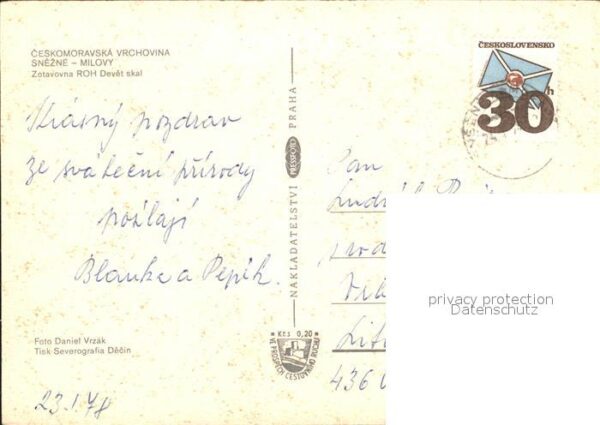 ČESKOMORAVSKÁ VRCHOVINA
SNĚŽNÉ – MILOVY
Zotavovna ROH Devět skal
Krásný pozdrav
ze sváteční přírody
posílají
Blanka a Pepík.
Foto Daniel Vrzák
Tisk Severografia Děčín
23. I. 78
NAKLADATELSTVÍ PRESSFOTO PRAHA
Kčs 0,20
VE PROSPĚCH CESTOVNÍHO RUCHU
ČESKOSLOVENSKO
30h
Pan
436
privacy protection
Datenschutz